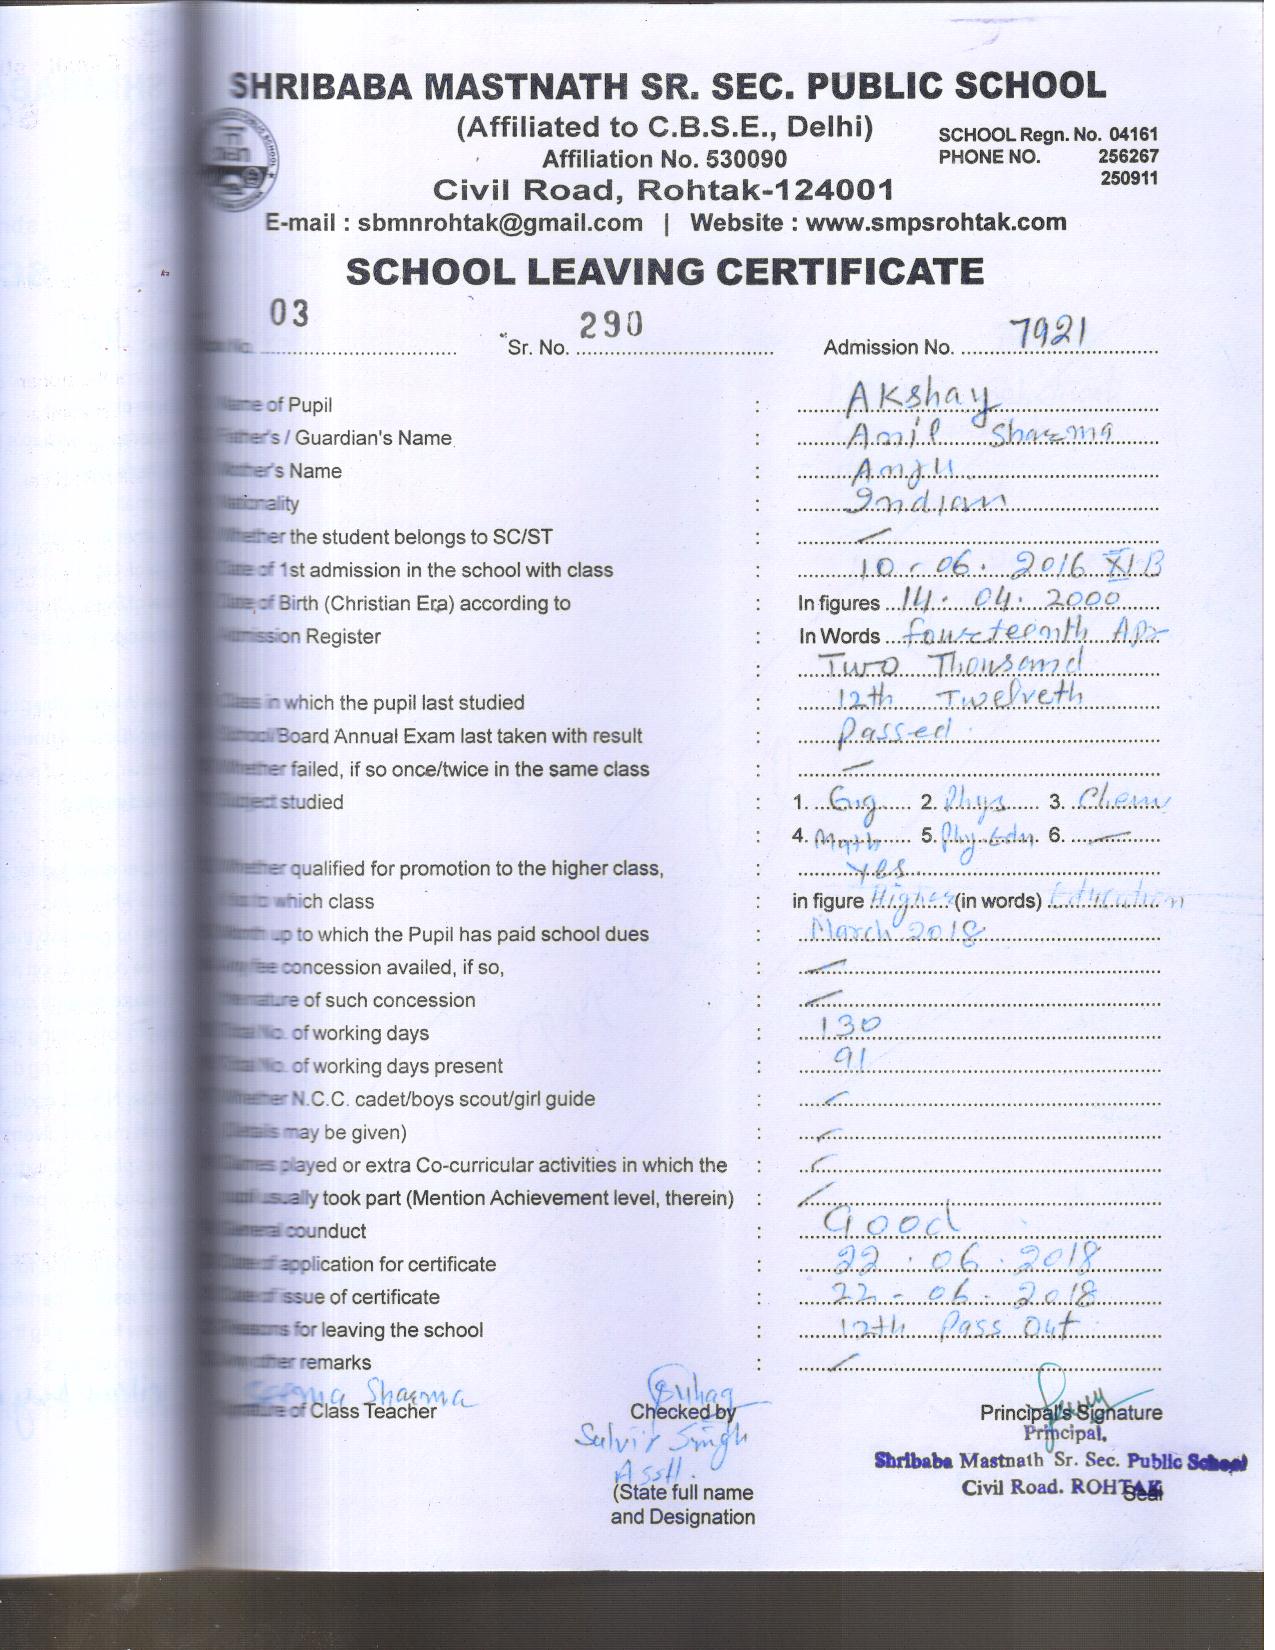 SHRIBABA MASTNATH SR. SEC. PUBLIC SCHOOL
(Affiliated to C.B.S.E., Delhi)
SCHOOL Regn. No. 04161
Affiliation No. 530090
PHONE NO. 256267
250911
Civil Road, Rohtak-124001
E-mail : sbmnrohtak@gmail.com | Website : www.smpsrohtak.com
SCHOOL LEAVING CERTIFICATE
03 Sr. No. 290 Admission No. 7921
Name of Pupil : Akshay
Father's / Guardian's Name : Anil Sharma
Mother's Name : Anju
Nationality : Indian
Whether the student belongs to SC/ST :
Date of 1st admission in the school with class : 10-06.2016 XI B
Date of Birth (Christian Era) according to : In figures 14.04.2000
Admission Register : In Words fourteenth Apr
: Two Thousand
Class in which the pupil last studied : 12th Twelveth
School/Board Annual Exam last taken with result : Passed
Whether failed, if so once/twice in the same class :
Subject studied : 1. Eng 2. Phys 3. Chem
: 4. Math 5. Phy Edu. 6.
Whether qualified for promotion to the higher class, : Yes
which class : in figure Higher (in words) Education
Month up to which the Pupil has paid school dues : March 2018
Any fee concession availed, if so, :
The nature of such concession :
Total No. of working days : 130
Total No. of working days present : 91
Whether N.C.C. cadet/boys scout/girl guide :
(Details may be given) :
Games played or extra Co-curricular activities in which the :
pupil usually took part (Mention Achievement level, therein) :
General counduct : Good
Date of application for certificate : 22.06.2018
Date of issue of certificate : 22-06-2018
Reasons for leaving the school : 12th Pass Out
Any other remarks :
Seema Sharma
Signature of Class Teacher Checked by Principal's Signature
Principal,
Singh
Shribaba Mastnath Sr. Sec. Public School
Asstt.
Civil Road. ROHTAK
Seal
(State full name
and Designation